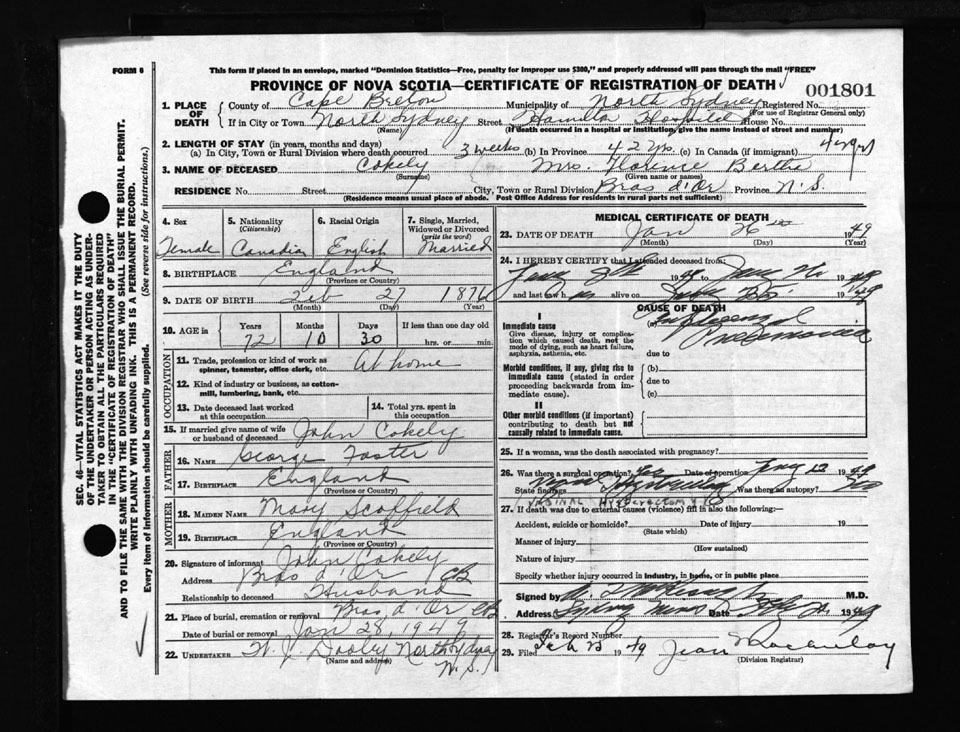 FORM 6
This form if placed in an envelope, marked "Dominion Statistics—Free, penalty for improper use $300," and properly addressed will pass through the mail "FREE"
PROVINCE OF NOVA SCOTIA—CERTIFICATE OF REGISTRATION OF DEATH
001801
1. PLACE OF DEATH
County of Cape Breton Municipality of North Sydney Registered No.
(For use of Registrar General only)
If in City or Town North Sydney Street Hamilton Hospital House No.
(Name) (If death occurred in a hospital or institution, give the name instead of street and number)
2. LENGTH OF STAY (in years, months and days)
(a) In City, Town or Rural Division where death occurred 3 weeks (b) In Province 42 yrs. (c) In Canada (if immigrant) 42 yrs
3. NAME OF DECEASED Cokely Mrs. Florence Bertha
(Surname) (Given name or names)
RESIDENCE No. Street City, Town or Rural Division Bras d'Or Province N.S.
(Residence means usual place of abode. Post Office Address for residents in rural parts not sufficient)
4. Sex Female
5. Nationality (Citizenship) Canadian
6. Racial Origin English
7. Single, Married, Widowed or Divorced (write the word) Married
8. BIRTHPLACE England
(Province or Country)
9. DATE OF BIRTH Feb 27 1876
(Month) (Day) (Year)
10. AGE in Years Months Days If less than one day old
72 10 30 hrs. or min.
OCCUPATION
11. Trade, profession or kind of work as spinner, teamster, office clerk, etc. At home
12. Kind of industry or business, as cotton-mill, lumbering, bank, etc.
13. Date deceased last worked at this occupation
14. Total yrs. spent in this occupation
15. If married give name of wife or husband of deceased John Cokely
FATHER
16. NAME George Foster
17. BIRTHPLACE England
(Province or Country)
MOTHER
18. MAIDEN NAME Mary Scoffield
19. BIRTHPLACE England
(Province or Country)
20. Signature of informant John Cokely
Address Bras d'Or CB
Relationship to deceased Husband
21. Place of burial, cremation or removal Bras d'Or CB
Date of burial or removal Jan 28, 1949
22. UNDERTAKER W. J. Dooley North Sydney
(Name and address) N.S.
MEDICAL CERTIFICATE OF DEATH
23. DATE OF DEATH Jan 26 1949
(Month) (Day) (Year)
24. I HEREBY CERTIFY that I attended deceased from:
19 to 19
and last saw h alive on 19
CAUSE OF DEATH
I
Immediate cause
Give disease, injury or complication which caused death, not the mode of dying, such as heart failure, asphyxia, asthenia, etc.
(a) Pneumonia
due to
Morbid conditions, if any, giving rise to immediate cause (stated in order proceeding backwards from immediate cause)
(b)
due to
(c)
II
Other morbid conditions (if important) contributing to death but not causally related to immediate cause.
25. If a woman, was the death associated with pregnancy?
26. Was there a surgical operation? Yes Date of operation 1949
State findings Was there an autopsy? No
VAGINAL HYSTERECTOMY
27. If death was due to external causes (violence) fill in also the following:—
Accident, suicide or homicide? Date of injury 19
(State which)
Manner of injury
(How sustained)
Nature of injury
Specify whether injury occurred in industry, in home, or in public place
Signed by M.D.
Address Sydney Mines Date 1949
28. Registrar's Record Number
29. Filed Feb 19 49 Jean
(Division Registrar)
SEC. 46—VITAL STATISTICS ACT MAKES IT THE DUTY
OF THE UNDERTAKER OR PERSON ACTING AS UNDER-
TAKER TO OBTAIN ALL THE PARTICULARS REQUIRED
IN THE "CERTIFICATE OF REGISTRATION OF DEATH"
AND TO FILE THE SAME WITH THE DIVISION REGISTRAR WHO SHALL ISSUE THE BURIAL PERMIT.
WRITE PLAINLY WITH UNFADING INK. THIS IS A PERMANENT RECORD.
Every item of information should be carefully supplied. (See reverse side for instructions.)